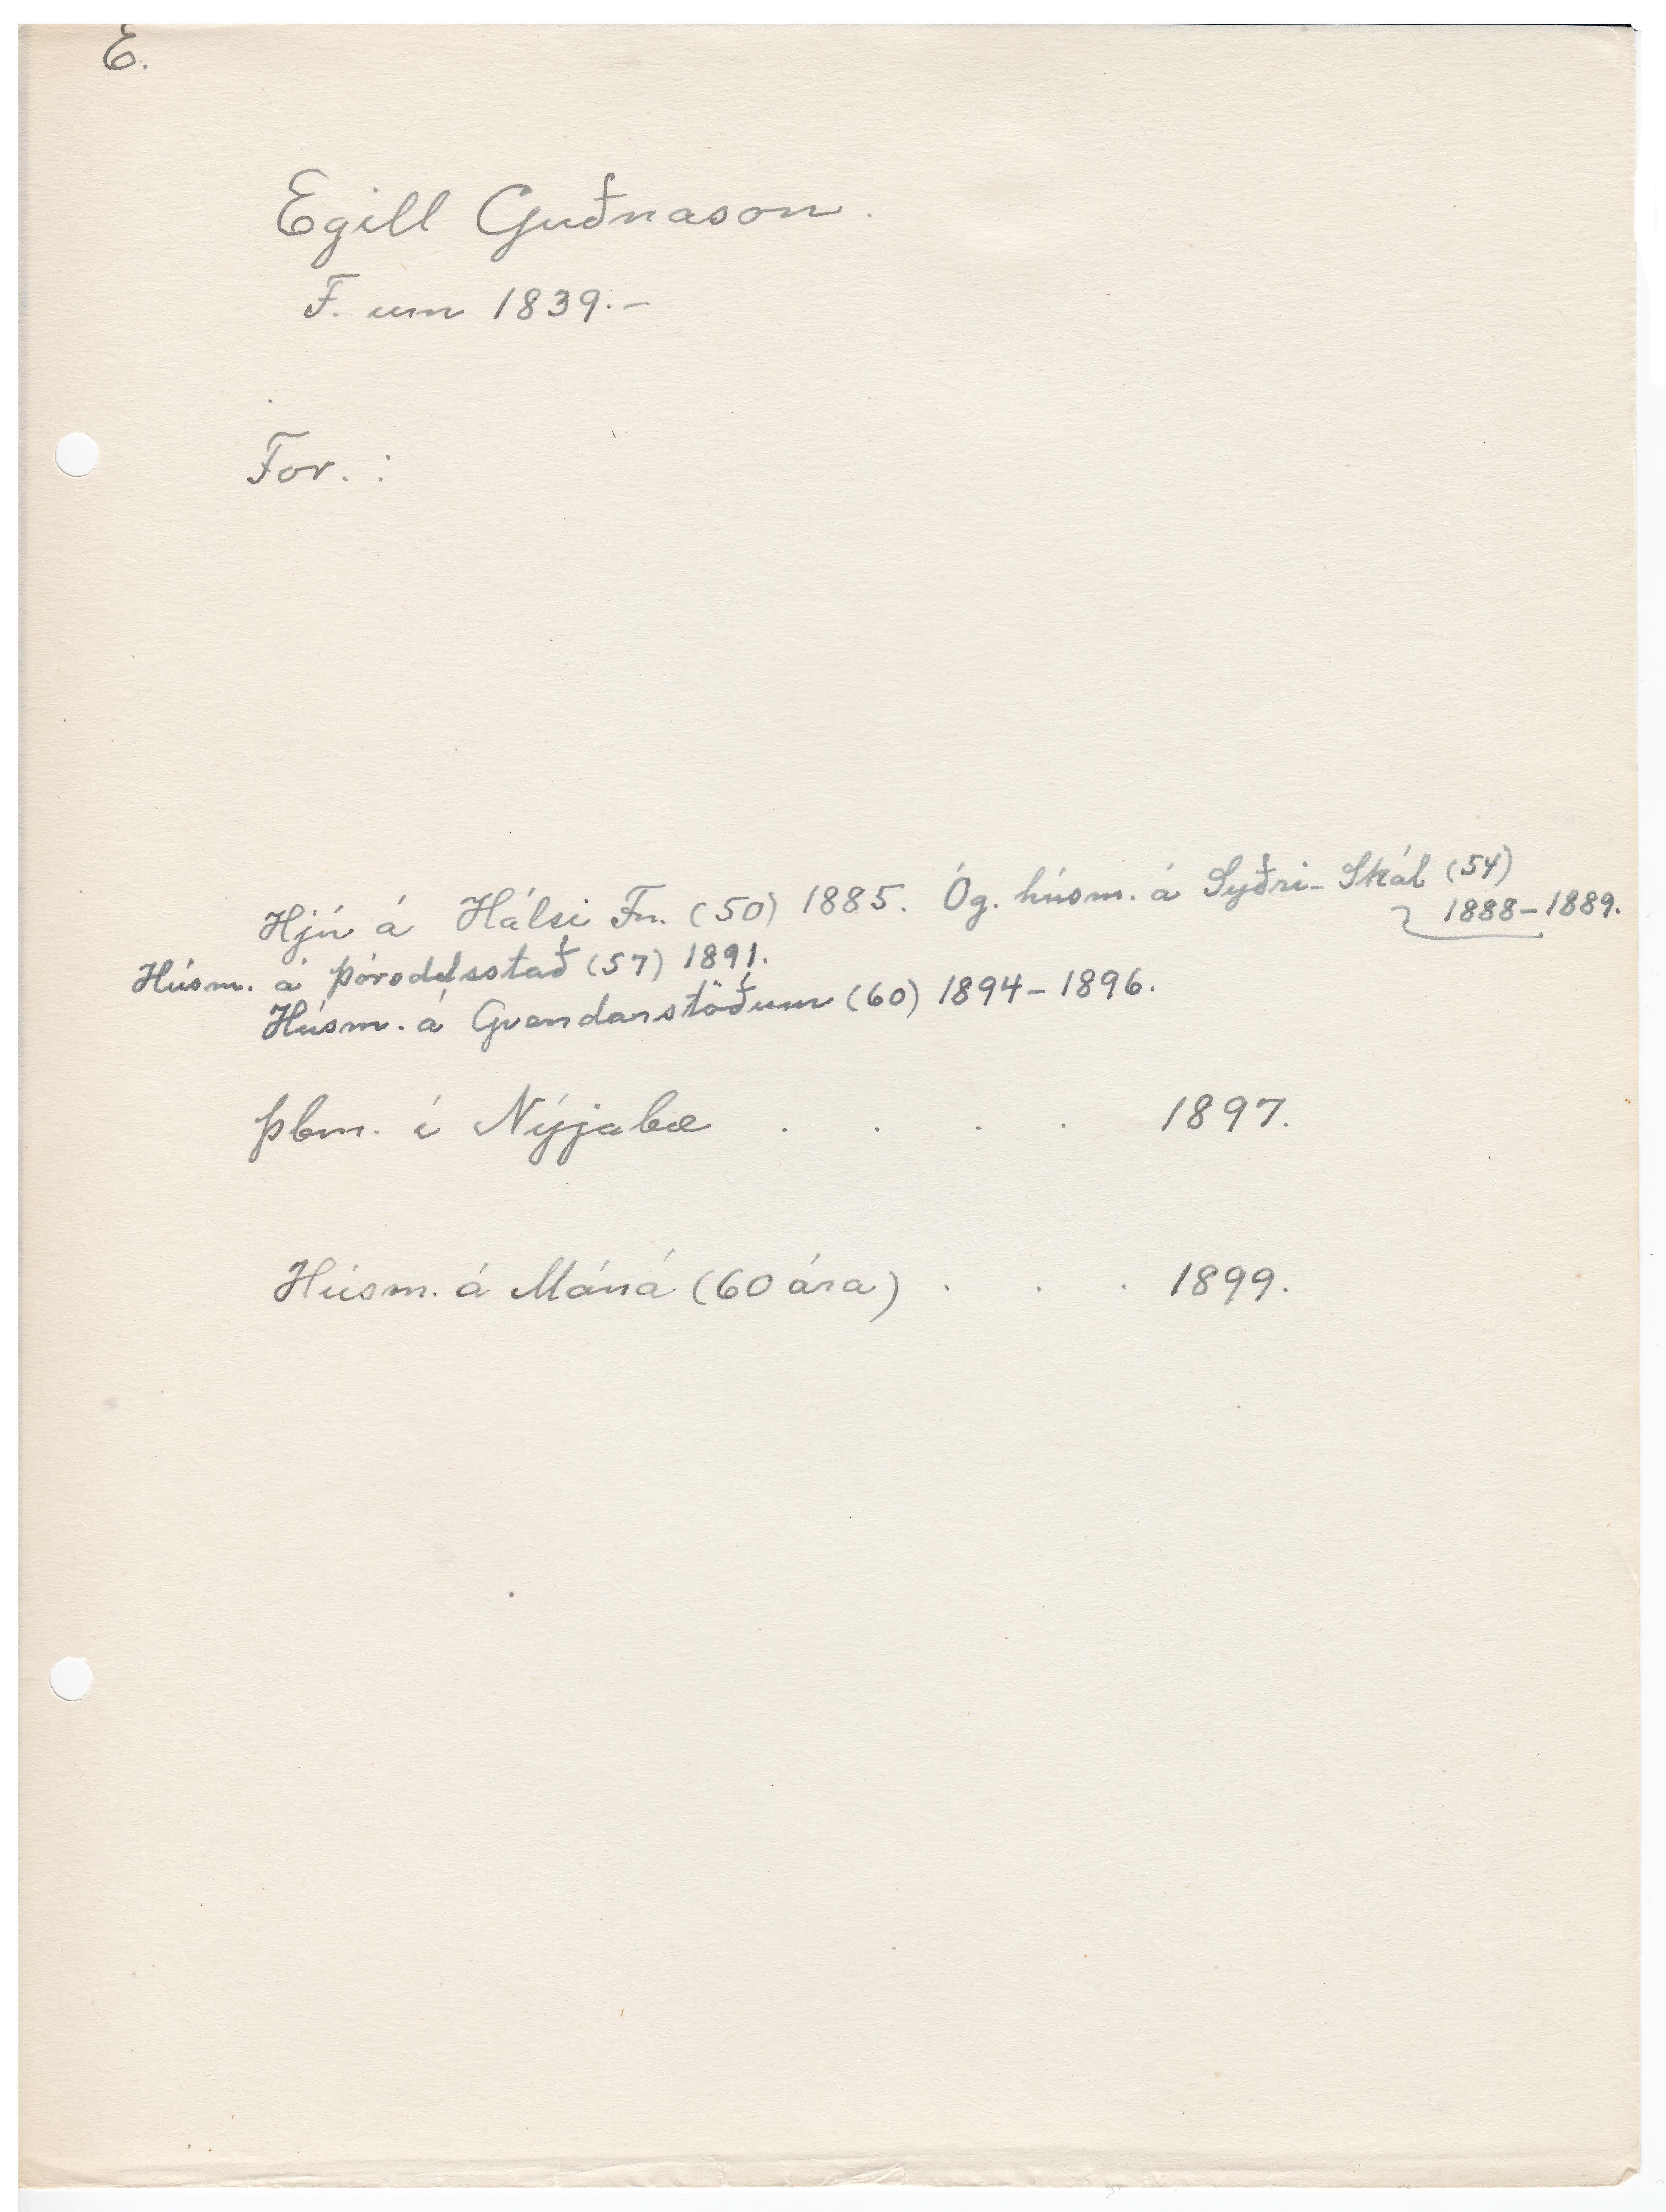 E.
Egill Guðnason.
F. um 1839.-
For. :
Hjú á Hálsi Fn. (50) 1885. Óg. húsm. á Syðri-Skál (54)
1888-1889.
Húsm. á Þóroddsstað (57) 1891.
Húsm. á Gvendarstöðum (60) 1894-1896.
Þbm. í Nýjabæ . . . . 1897.
Húsm. á Máná (60 ára) . . . 1899.